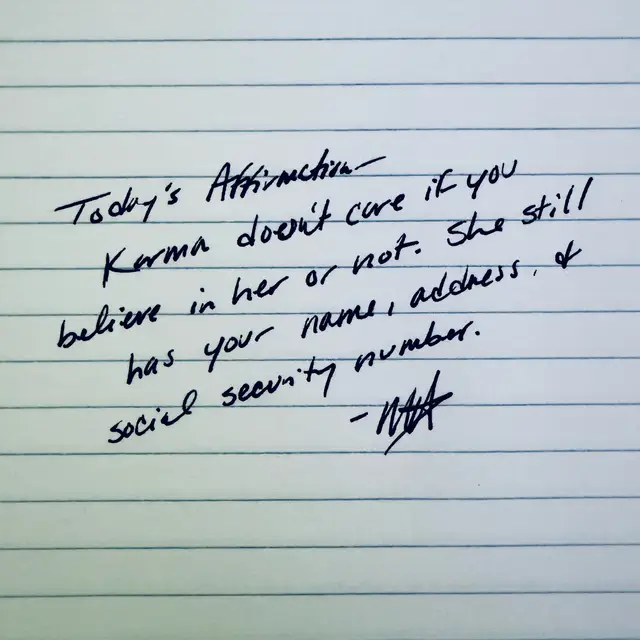 Today's Affirmation—
Karma doesn't care if you
believe in her or not. She still
has your name, address, &
social security number.